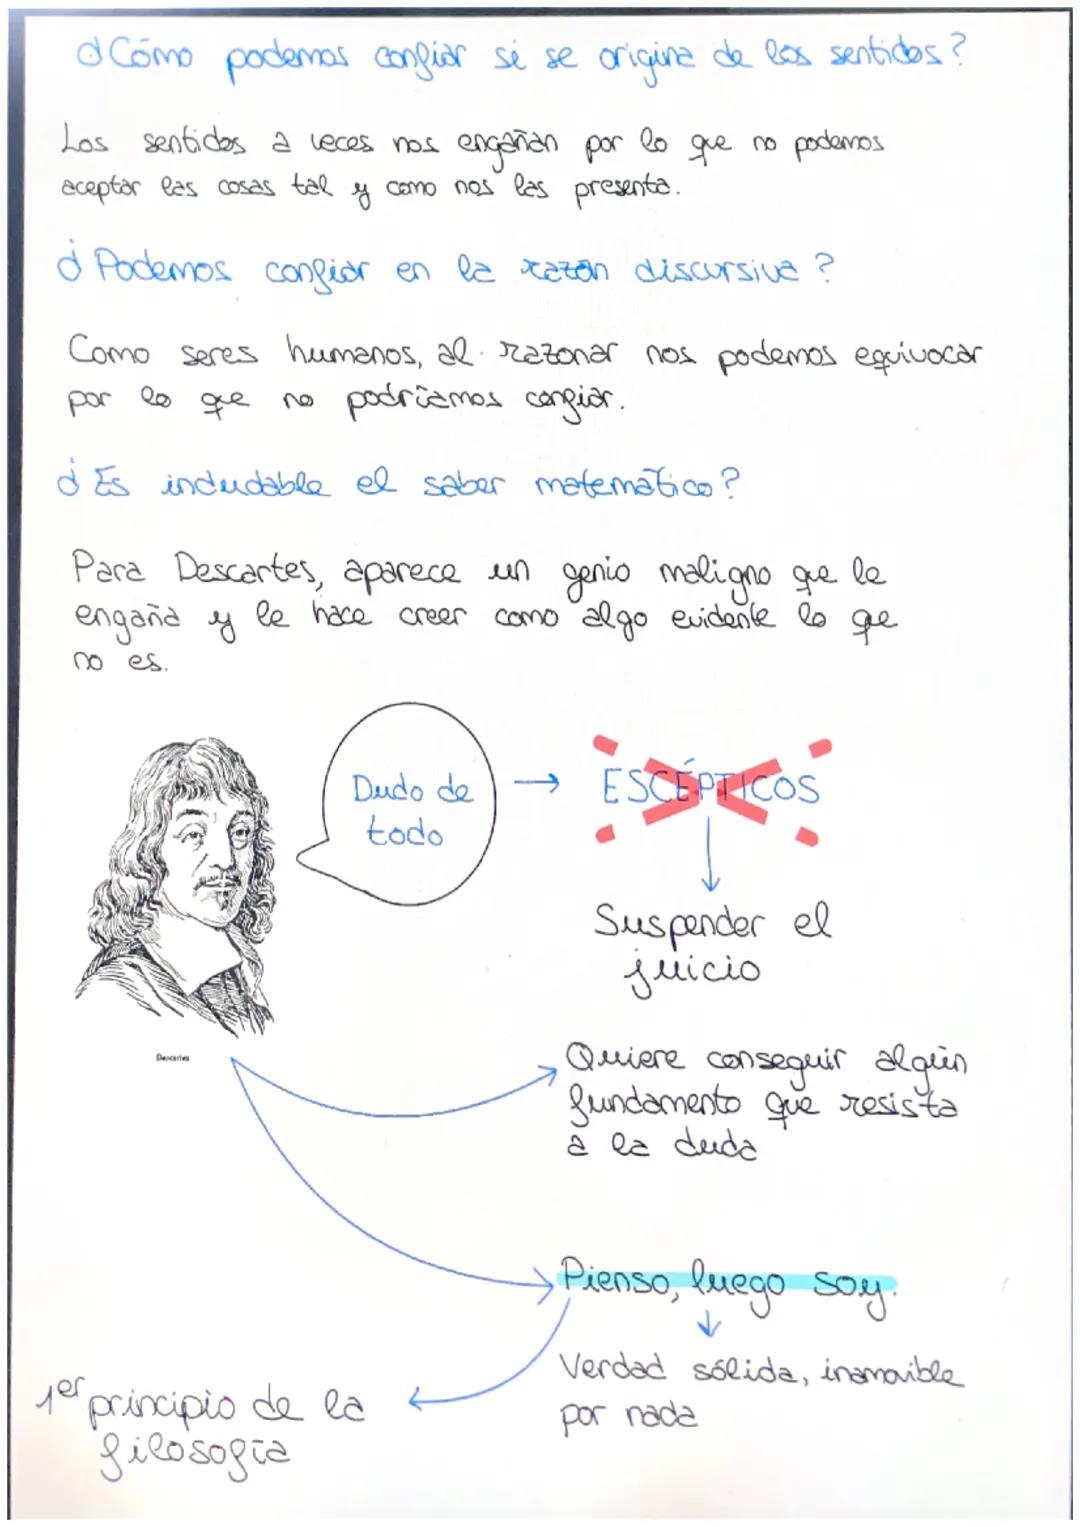 ¿Cómo podemos confiar si se origina de los sentidos?
Los sentidos a veces nos engañan por lo que no podemos
aceptar las cosas tal y como nos las presenta.
¿Podemos confiar en la razón discursiva?
Como seres humanos, al razonar nos podemos equivocar
por lo que no podríamos confiar.
¿Es indudable el saber matemático?
Para Descartes, aparece un genio maligno que le
engaña y le hace creer como algo evidente lo que
no es.
Dudo de
todo
→ ESCÉPTICOS
Suspender el
juicio
Descartes
Quiere conseguir algún
fundamento que resista
a la duda
Pienso, luego soy.
Verdad sólida, inamovible
por nada
1er principio de la
filosofía